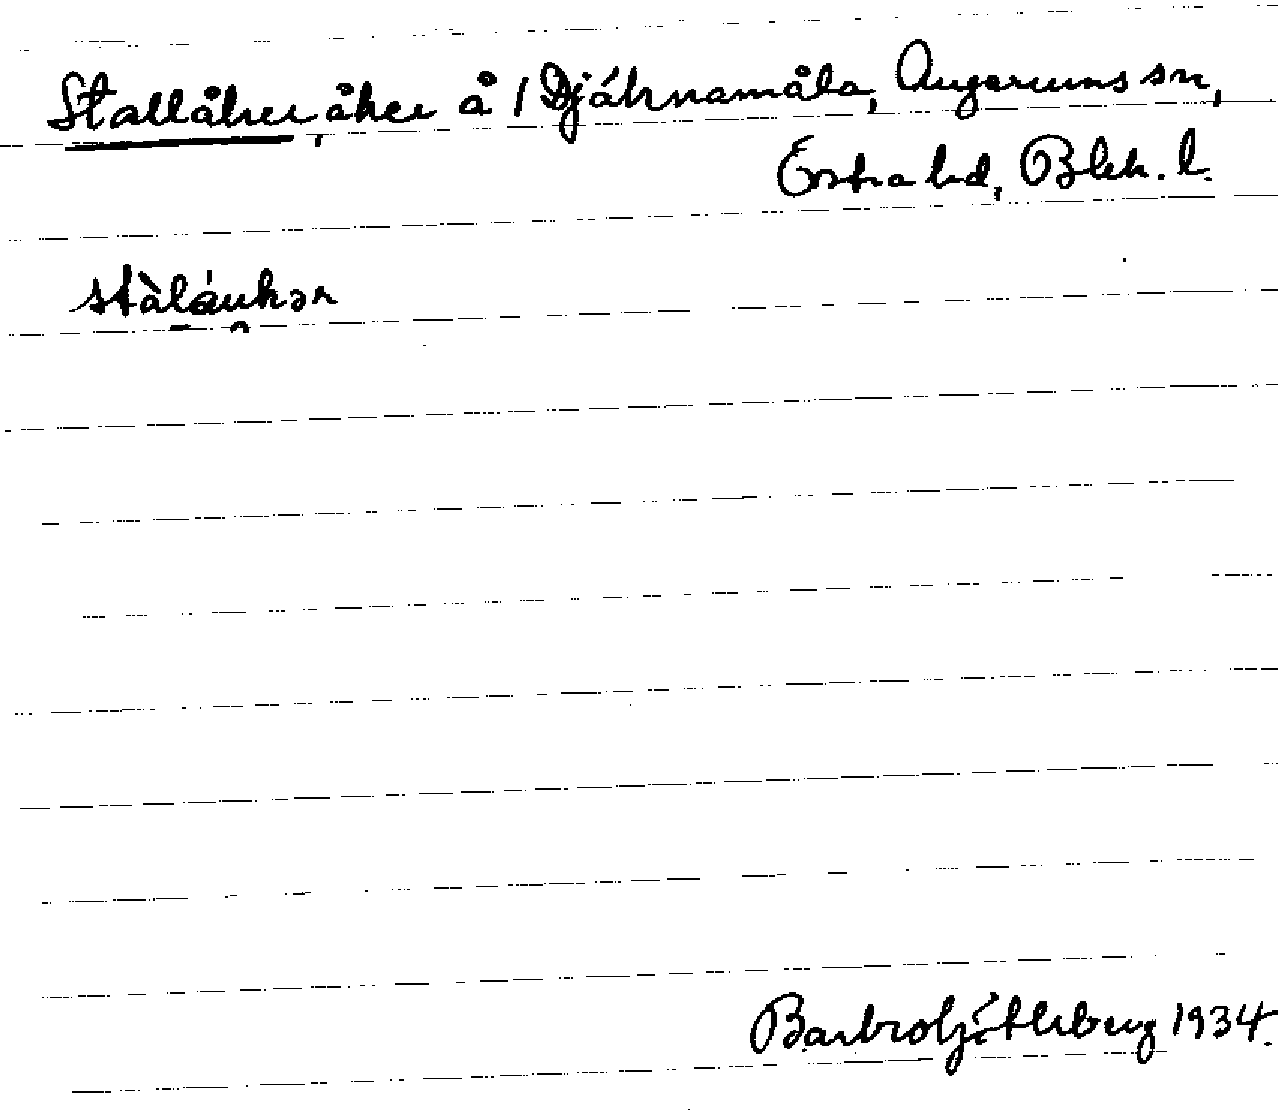 Stallåker, åker å 1 Djáknamåla, Augerums sn,
Östra hd, Blek. l.
stàláukər
Barbro Ljétleberg 1934.